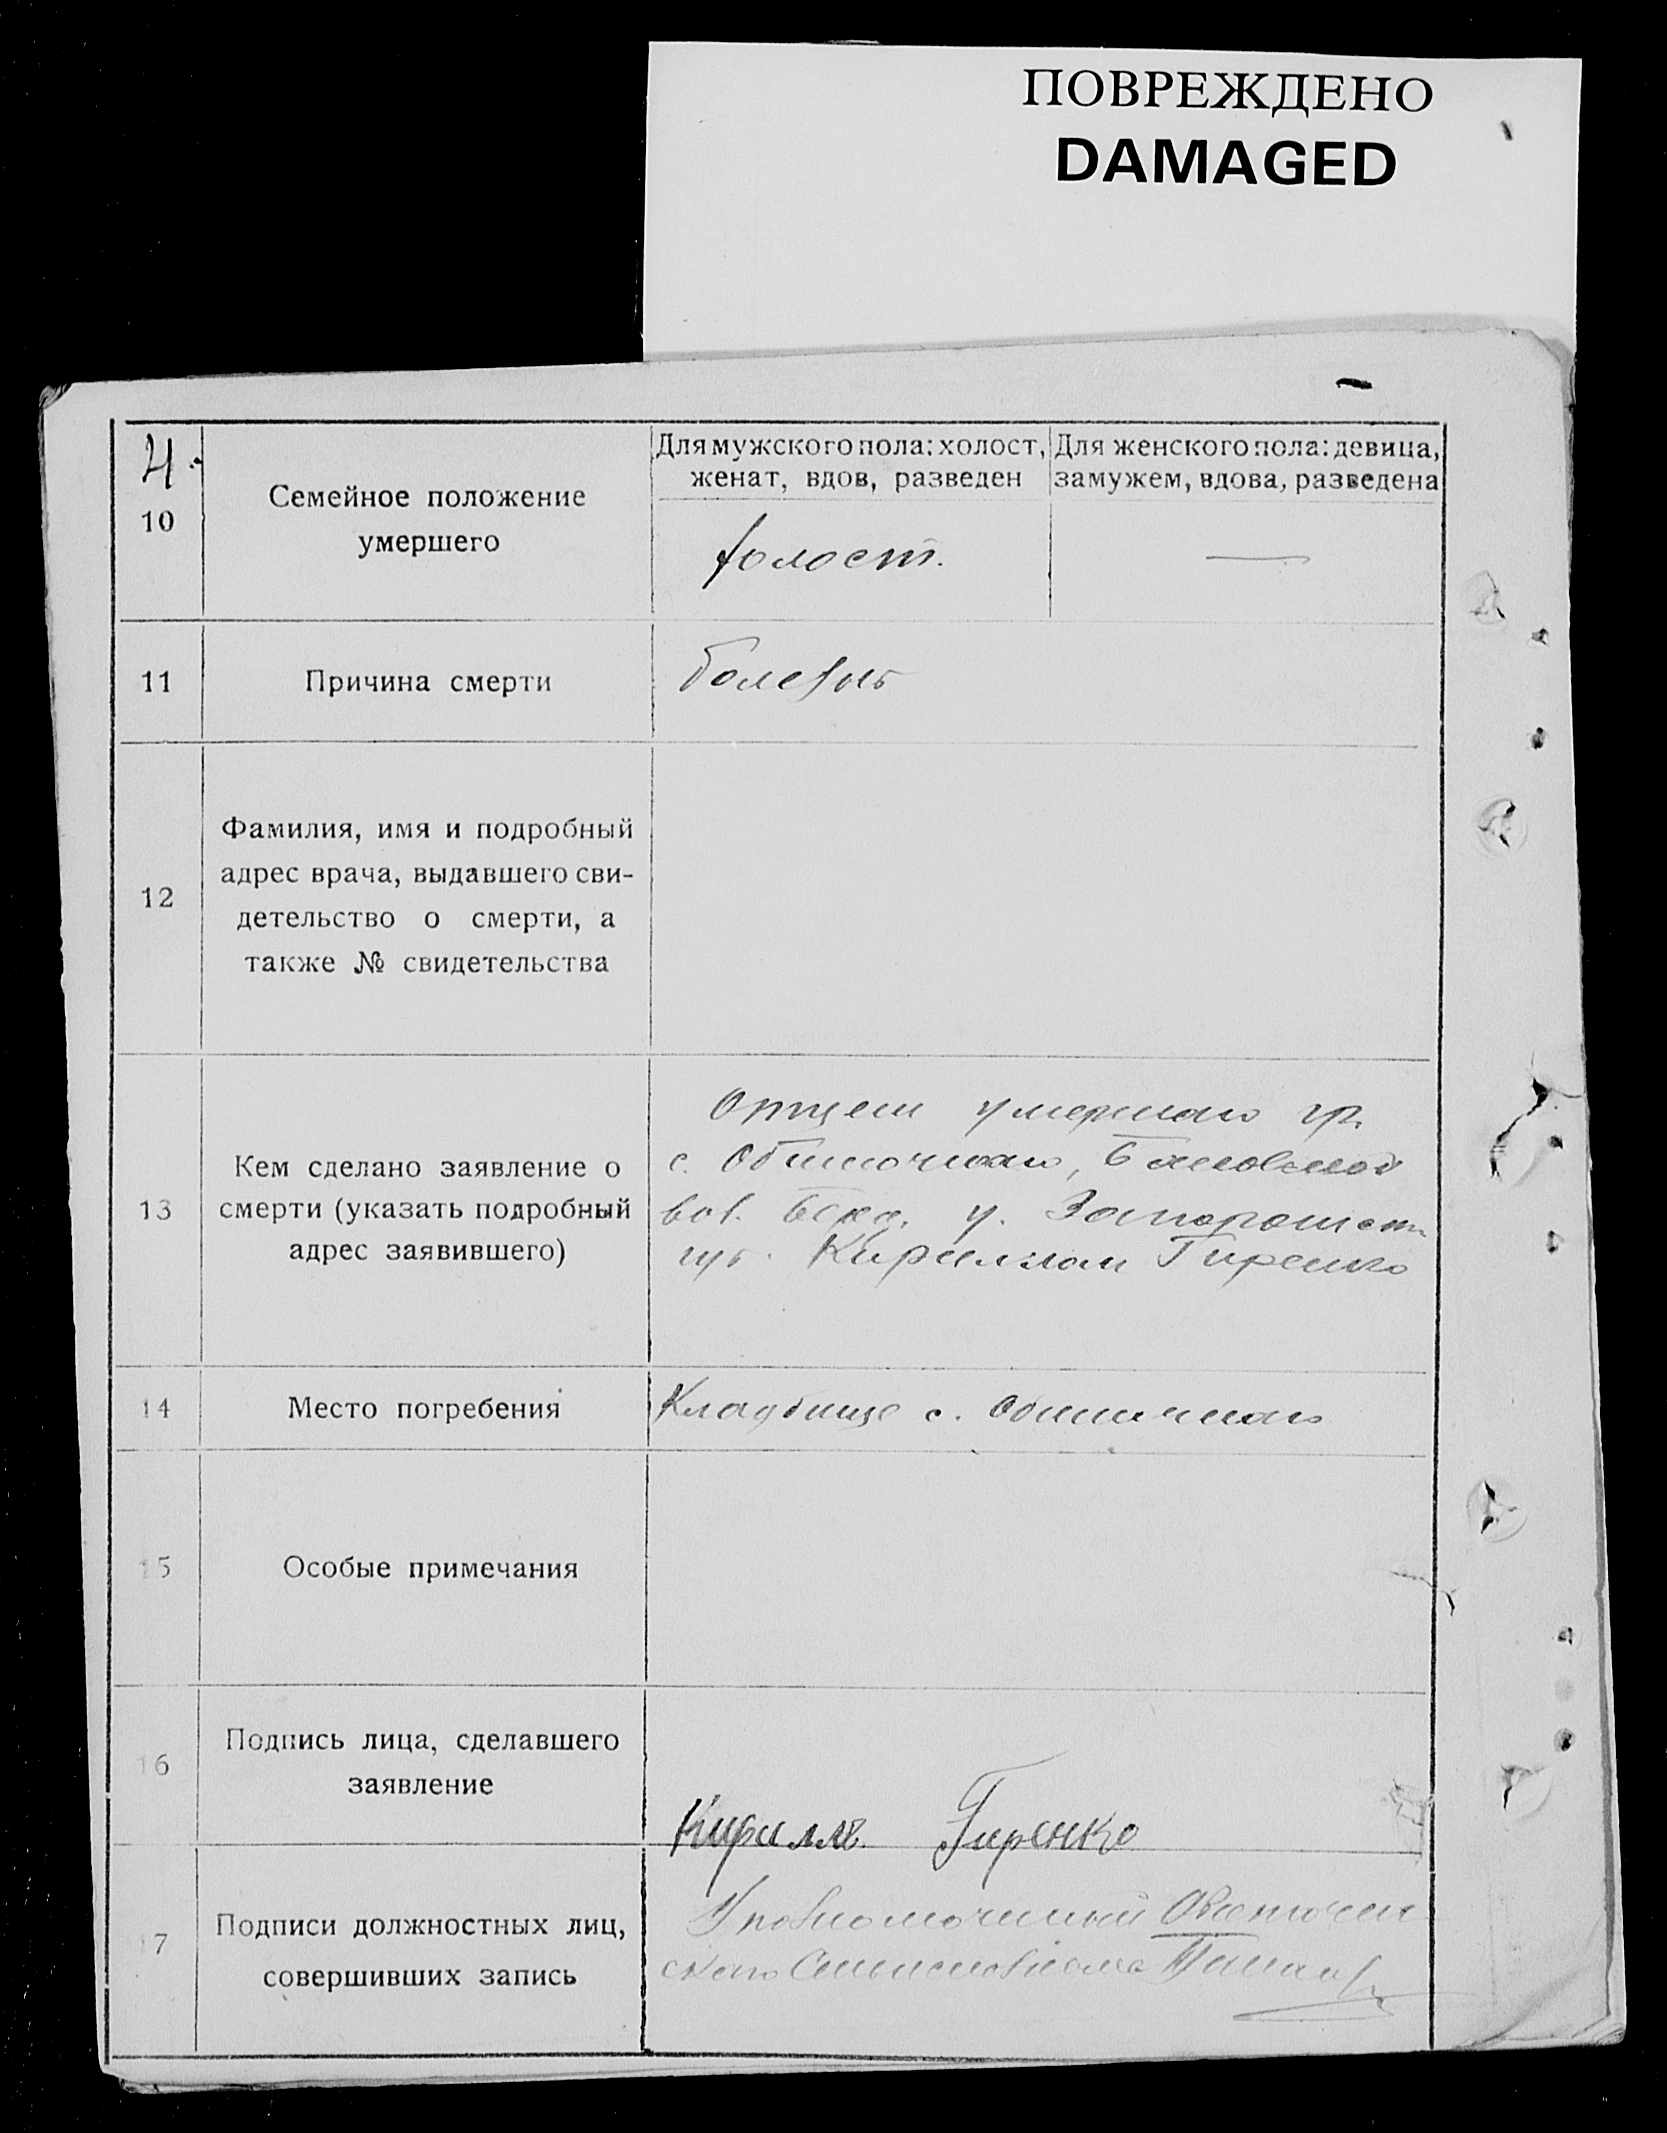 ПОВРЕЖДЕНО
DAMAGED
4.
10
Семейное положение
умершего
Для мужского пола: холост,
женат, вдов, разведен
Для женского пола: девица,
замужем, вдова, разведена
Холост.
—
11
Причина смерти
болезнь
12
Фамилия, имя и подробный
адрес врача, выдавшего сви-
детельство о смерти, а
также № свидетельства
13
Кем сделано заявление о
смерти (указать подробный
адрес заявившего)
Отцем умершаго гр.
с. Обиточнаго,
вол. у. Запорожск
губ. Кириллом Гиренко
14
Место погребения
Кладбище с. Обиточнаго
15
Особые примечания
16
Подпись лица, сделавшего
заявление
Кириллъ Гиренко
17
Подписи должностных лиц,
совершивших запись
Уполномоченный Обиточен
ского